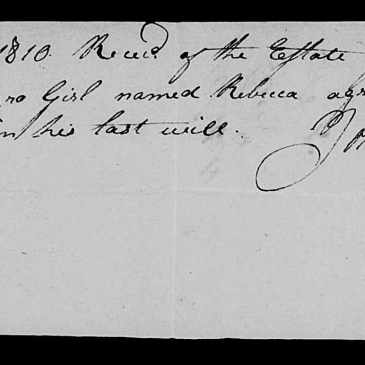 1810. Recd of the Estate
ro Girl named Rebecca agr
in his last will.